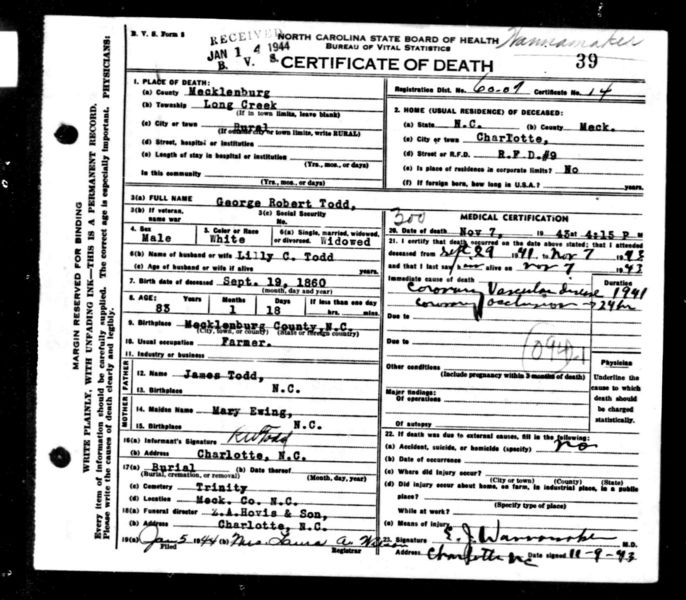 B. V. S. Form 8
RECEIVED
JAN 14 1944
B. V. S.
NORTH CAROLINA STATE BOARD OF HEALTH
BUREAU OF VITAL STATISTICS
CERTIFICATE OF DEATH
Wannamaker
39
MARGIN RESERVED FOR BINDING
WRITE PLAINLY, WITH UNFADING INK—THIS IS A PERMANENT RECORD.
Every item of information should be carefully supplied. The correct age is especially important. PHYSICIANS:
Please write the causes of death clearly and legibly.
1. PLACE OF DEATH:
(a) County Mecklenburg
(b) Township Long Creek
(If in town limits, leave blank)
(c) City or town Rural
(If outside city or town limits, write RURAL)
(d) Street, hospital or institution
(e) Length of stay in hospital or institution
(Yrs., mos., or days)
In this community
(Yrs., mos., or days)
Registration Dist. No. 60-07 Certificate No. 14
2. HOME (USUAL RESIDENCE) OF DECEASED:
(a) State N.C. (b) County Meck.
(c) City or town Charlotte,
(d) Street or R.F.D. R.F.D.#9
(e) Is place of residence in corporate limits? No
(f) If foreign born, how long in U.S.A.? years.
3(a) FULL NAME George Robert Todd,
3(b) If veteran, name war
3(c) Social Security No.
4. Sex Male
5. Color or Race White
6(a) Single, married, widowed, or divorced. Widowed
6(b) Name of husband or wife Lilly C. Todd
(c) Age of husband or wife if alive years.
7. Birth date of deceased Sept. 19, 1860
(month, day and year)
8. AGE: Years Months Days If less than one day
83 1 18 hrs. mins.
9. Birthplace Mecklenburg County, N.C.
(City, town, or county) (State or foreign country)
10. Usual occupation Farmer.
11. Industry or business
FATHER
12. Name James Todd,
13. Birthplace N.C.
MOTHER
14. Maiden Name Mary Ewing,
15. Birthplace N.C.
16(a) Informant's Signature R W Todd
(b) Address Charlotte, N.C.
17(a) Burial (b) Date thereof
(Burial, cremation, or removal) (Month, day, year)
(c) Cemetery Trinity
(d) Location Meck. Co. N.C.
18(a) Funeral director Z.A.Hovis & Son,
(b) Address Charlotte, N.C.
19(a) Jan 5 1944 (b) Mrs. Laura A. Wilson
Filed Registrar
300
MEDICAL CERTIFICATION
20. Date of death Nov 7, 1943 at 4:15 P M
21. I certify that death occurred on the above stated; that I attended
deceased from Sept 29 1941 to Nov 7 1943
and that I last saw h alive on Nov 7 1943
Immediate cause of death Duration
Coronary Vascular disease 1941
Coronary occlusion → 24 hr
Due to
Due to
094-1
Other conditions
(Include pregnancy within 3 months of death)
Major findings:
Of operations
Of autopsy
Physician
Underline the cause to which death should be charged statistically.
22. If death was due to external causes, fill in the following:
(a) Accident, suicide, or homicide (specify) no
(b) Date of occurrence
(c) Where did injury occur?
(City) (County) (State)
(d) Did injury occur about home, on farm, in industrial place, in a public
place?
(Specify type of place)
While at work?
(e) Means of injury
23. Signature E. J. Wannamaker M.D.
Address Charlotte NC Date signed 11-9-43